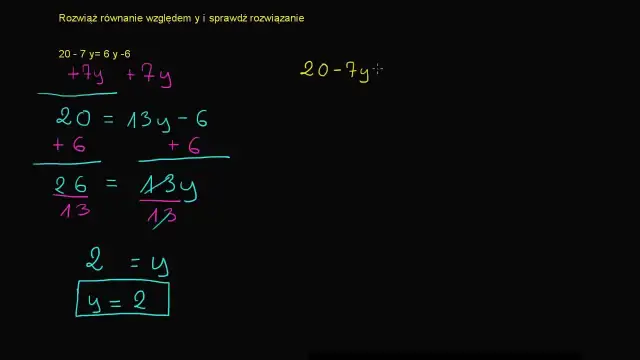 Rozwiąż równanie względem y i sprawdź rozwiązanie
20 - 7 y= 6 y -6
+7y +7y
20 = 13y - 6
+ 6 + 6
26 = 13y
13 13
2 = y
y = 2
20 - 7y